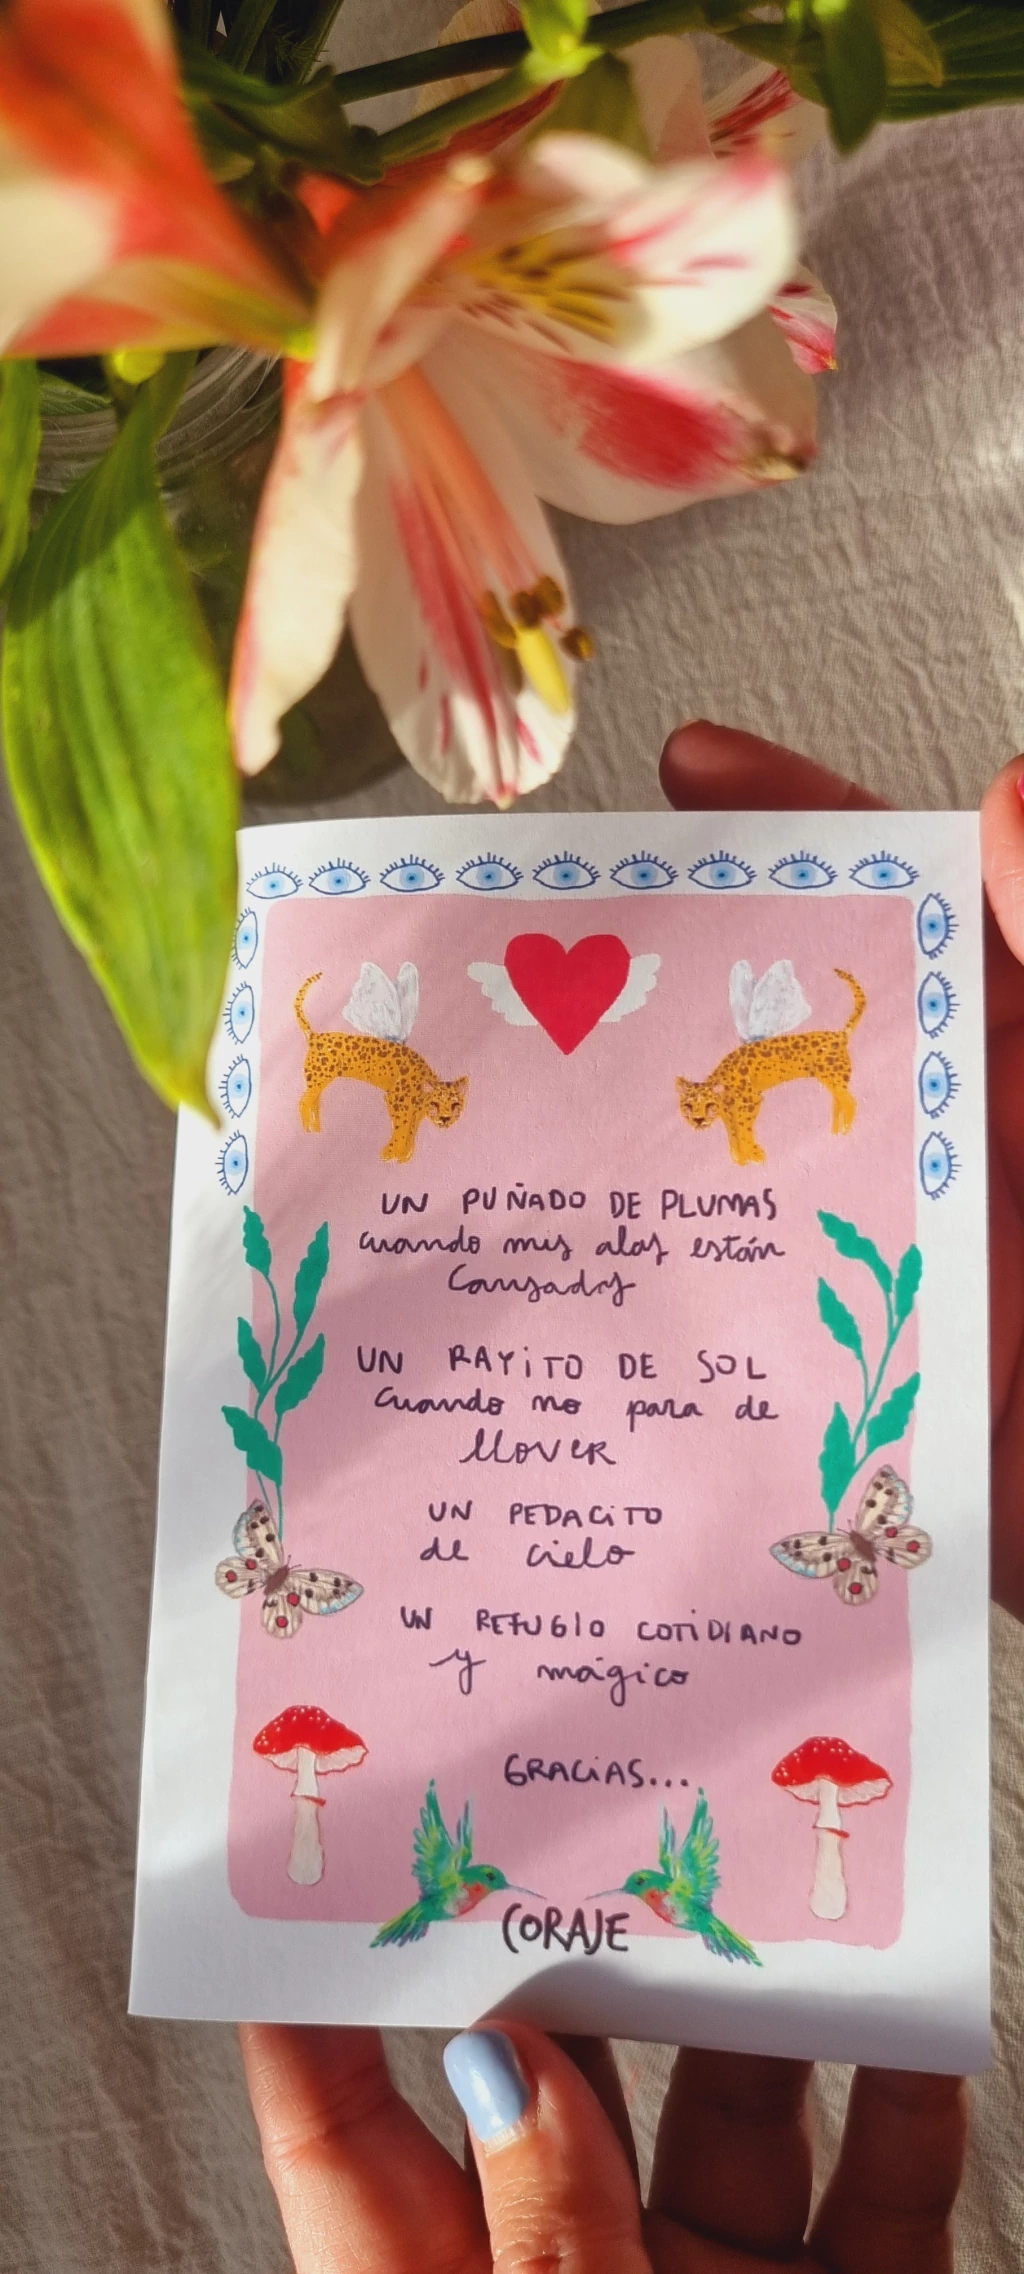 UN PUÑADO DE PLUMAS
cuando mis alas están
Cansadas
UN RAYiTO DE SOL
cuando no para de
lloveR
UN PEDACiTO
de cielo
UN REFUGIO COTiDIANO
y mágico
GRACiAS...
CORAJE